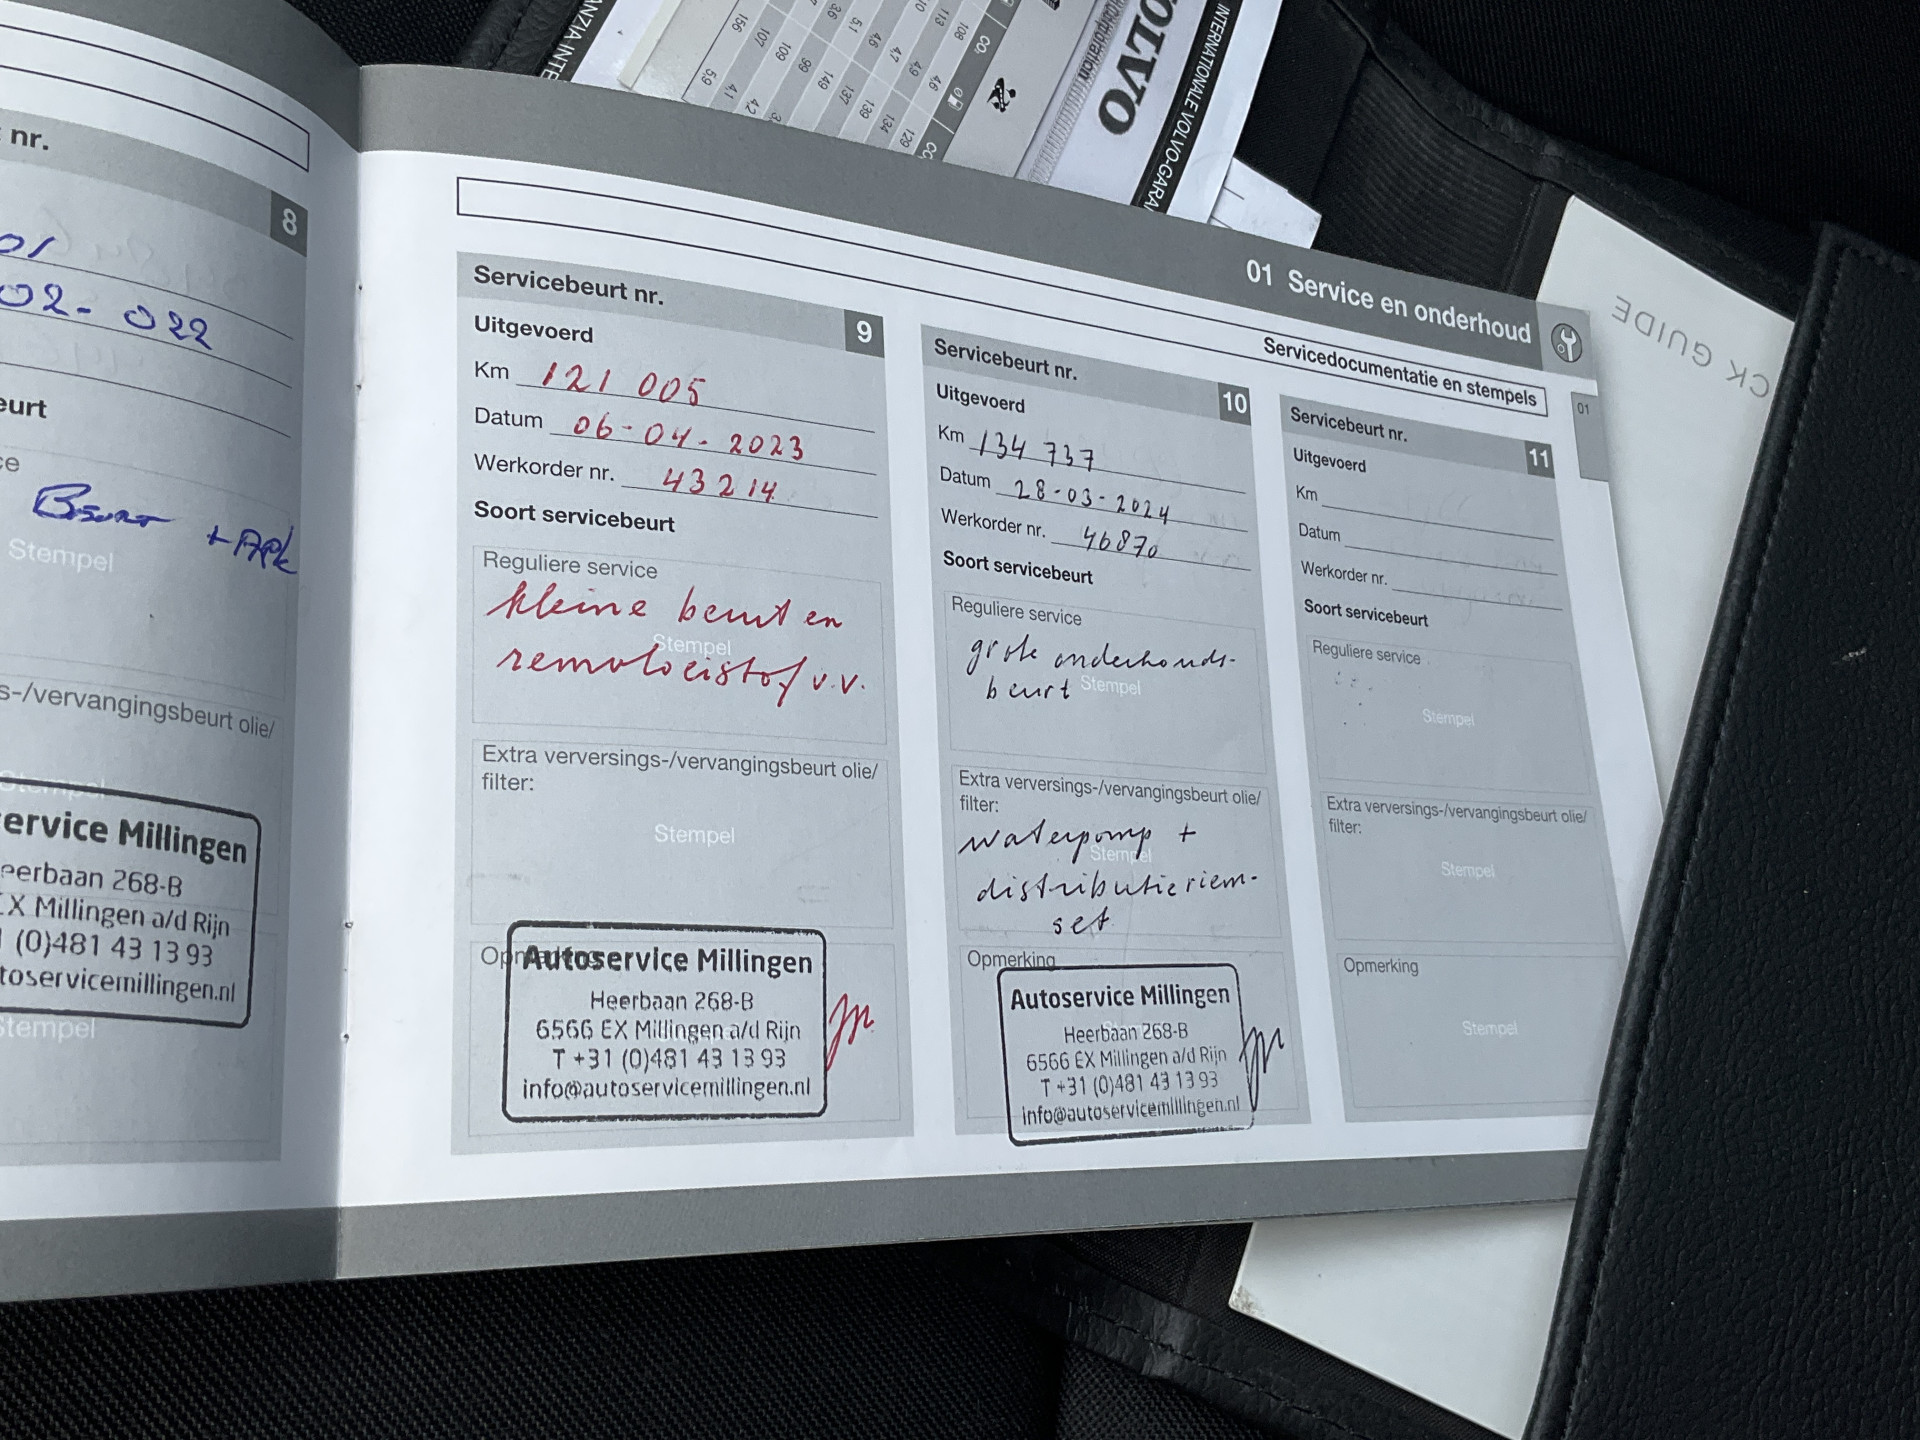 INTERNATIONALE VOLVO-GARA
VOLVO
CK GUIDE
nr.
8
02-022
eurt
Beurt + APK
Stempel
s-/vervangingsbeurt olie/
Stempel
ervice Millingen
eerbaan 268-B
EX Millingen a/d Rijn
(0)481 43 13 93
toservicemillingen.nl
Stempel
01 Service en onderhoud
Servicedocumentatie en stempels
01
Servicebeurt nr.
9
Uitgevoerd
Km 121 005
Datum 06-04-2023
Werkorder nr. 43214
Soort servicebeurt
Reguliere service
kleine beurt en
Stempel
remvloeistof v.v.
Extra verversings-/vervangingsbeurt olie/
filter:
Stempel
Opmerking
Autoservice Millingen
Heerbaan 268-B
6566 EX Millingen a/d Rijn
T +31 (0)481 43 13 93
info@autoservicemillingen.nl
Servicebeurt nr.
10
Uitgevoerd
Km 134 737
Datum 28-03-2024
Werkorder nr. 46870
Soort servicebeurt
Reguliere service
grote onderhouds-
beurt
Stempel
Extra verversings-/vervangingsbeurt olie/
filter:
waterpomp +
Stempel
distributieriem-
set
Opmerking
Autoservice Millingen
Heerbaan 268-B
6566 EX Millingen a/d Rijn
T +31 (0)481 43 13 93
info@autoservicemillingen.nl
Servicebeurt nr.
11
Uitgevoerd
Km
Datum
Werkorder nr.
Soort servicebeurt
Reguliere service
Stempel
Extra verversings-/vervangingsbeurt olie/
filter:
Stempel
Opmerking
Stempel